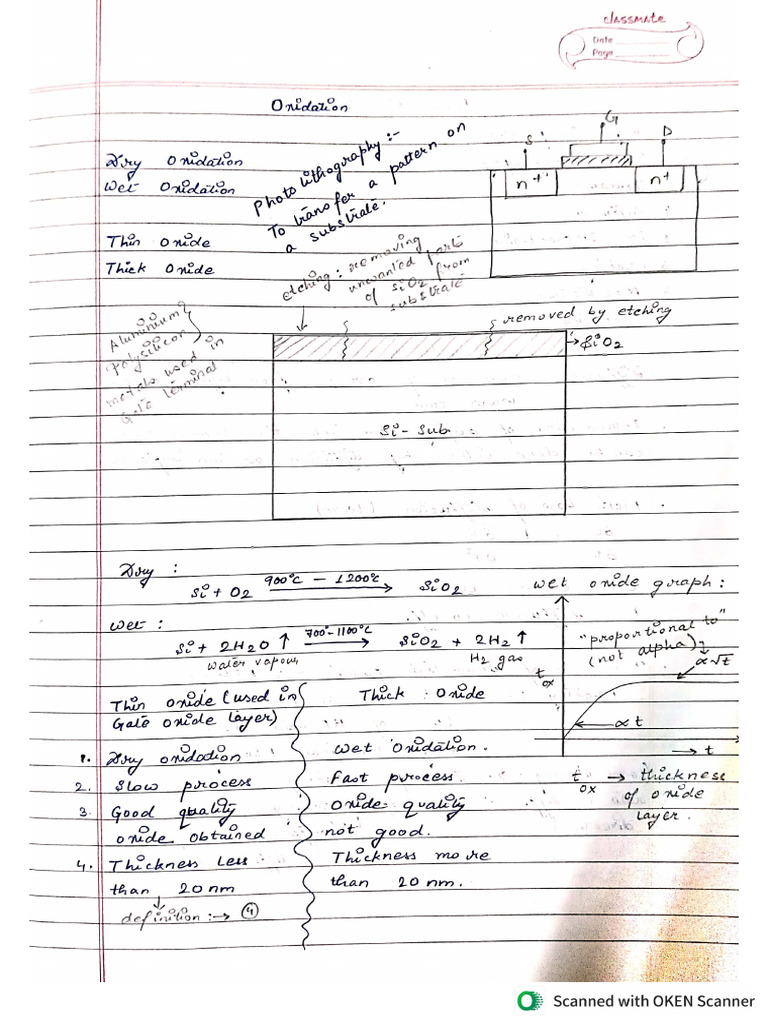 classmate
Date
Page
Oxidation
G
S
D
n+
n+
Dry Oxidation
Wet Oxidation
Photolithography:-
To transfer a pattern on
a substrate.
Thin Oxide
Thick Oxide
etching: removing
unwanted part
of SiO2 from
substrate
removed by etching
→ SiO2
Aluminium
Polysilicon
metals used in
Gate terminal
Si - Sub
Dry :
Si + O2 900°C - 1200°C → SiO2
wet oxide graph:
wet :
Si + 2H2O ↑ 700°-1100°C → SiO2 + 2H2 ↑
water vapour
H2 gas
"proportional to"
(not alpha)
α√t
tox
α t
→ t
Thin oxide (used in
Gate oxide layer)
Thick Oxide
1. Dry oxidation
wet Oxidation.
2. Slow process
Fast process.
3. Good quality
oxide obtained
Oxide quality
not good.
4. Thickness less
than 20nm
Thickness more
than 20nm.
definition :→ 4
tox → thickness
of oxide
layer.
Scanned with OKEN Scanner